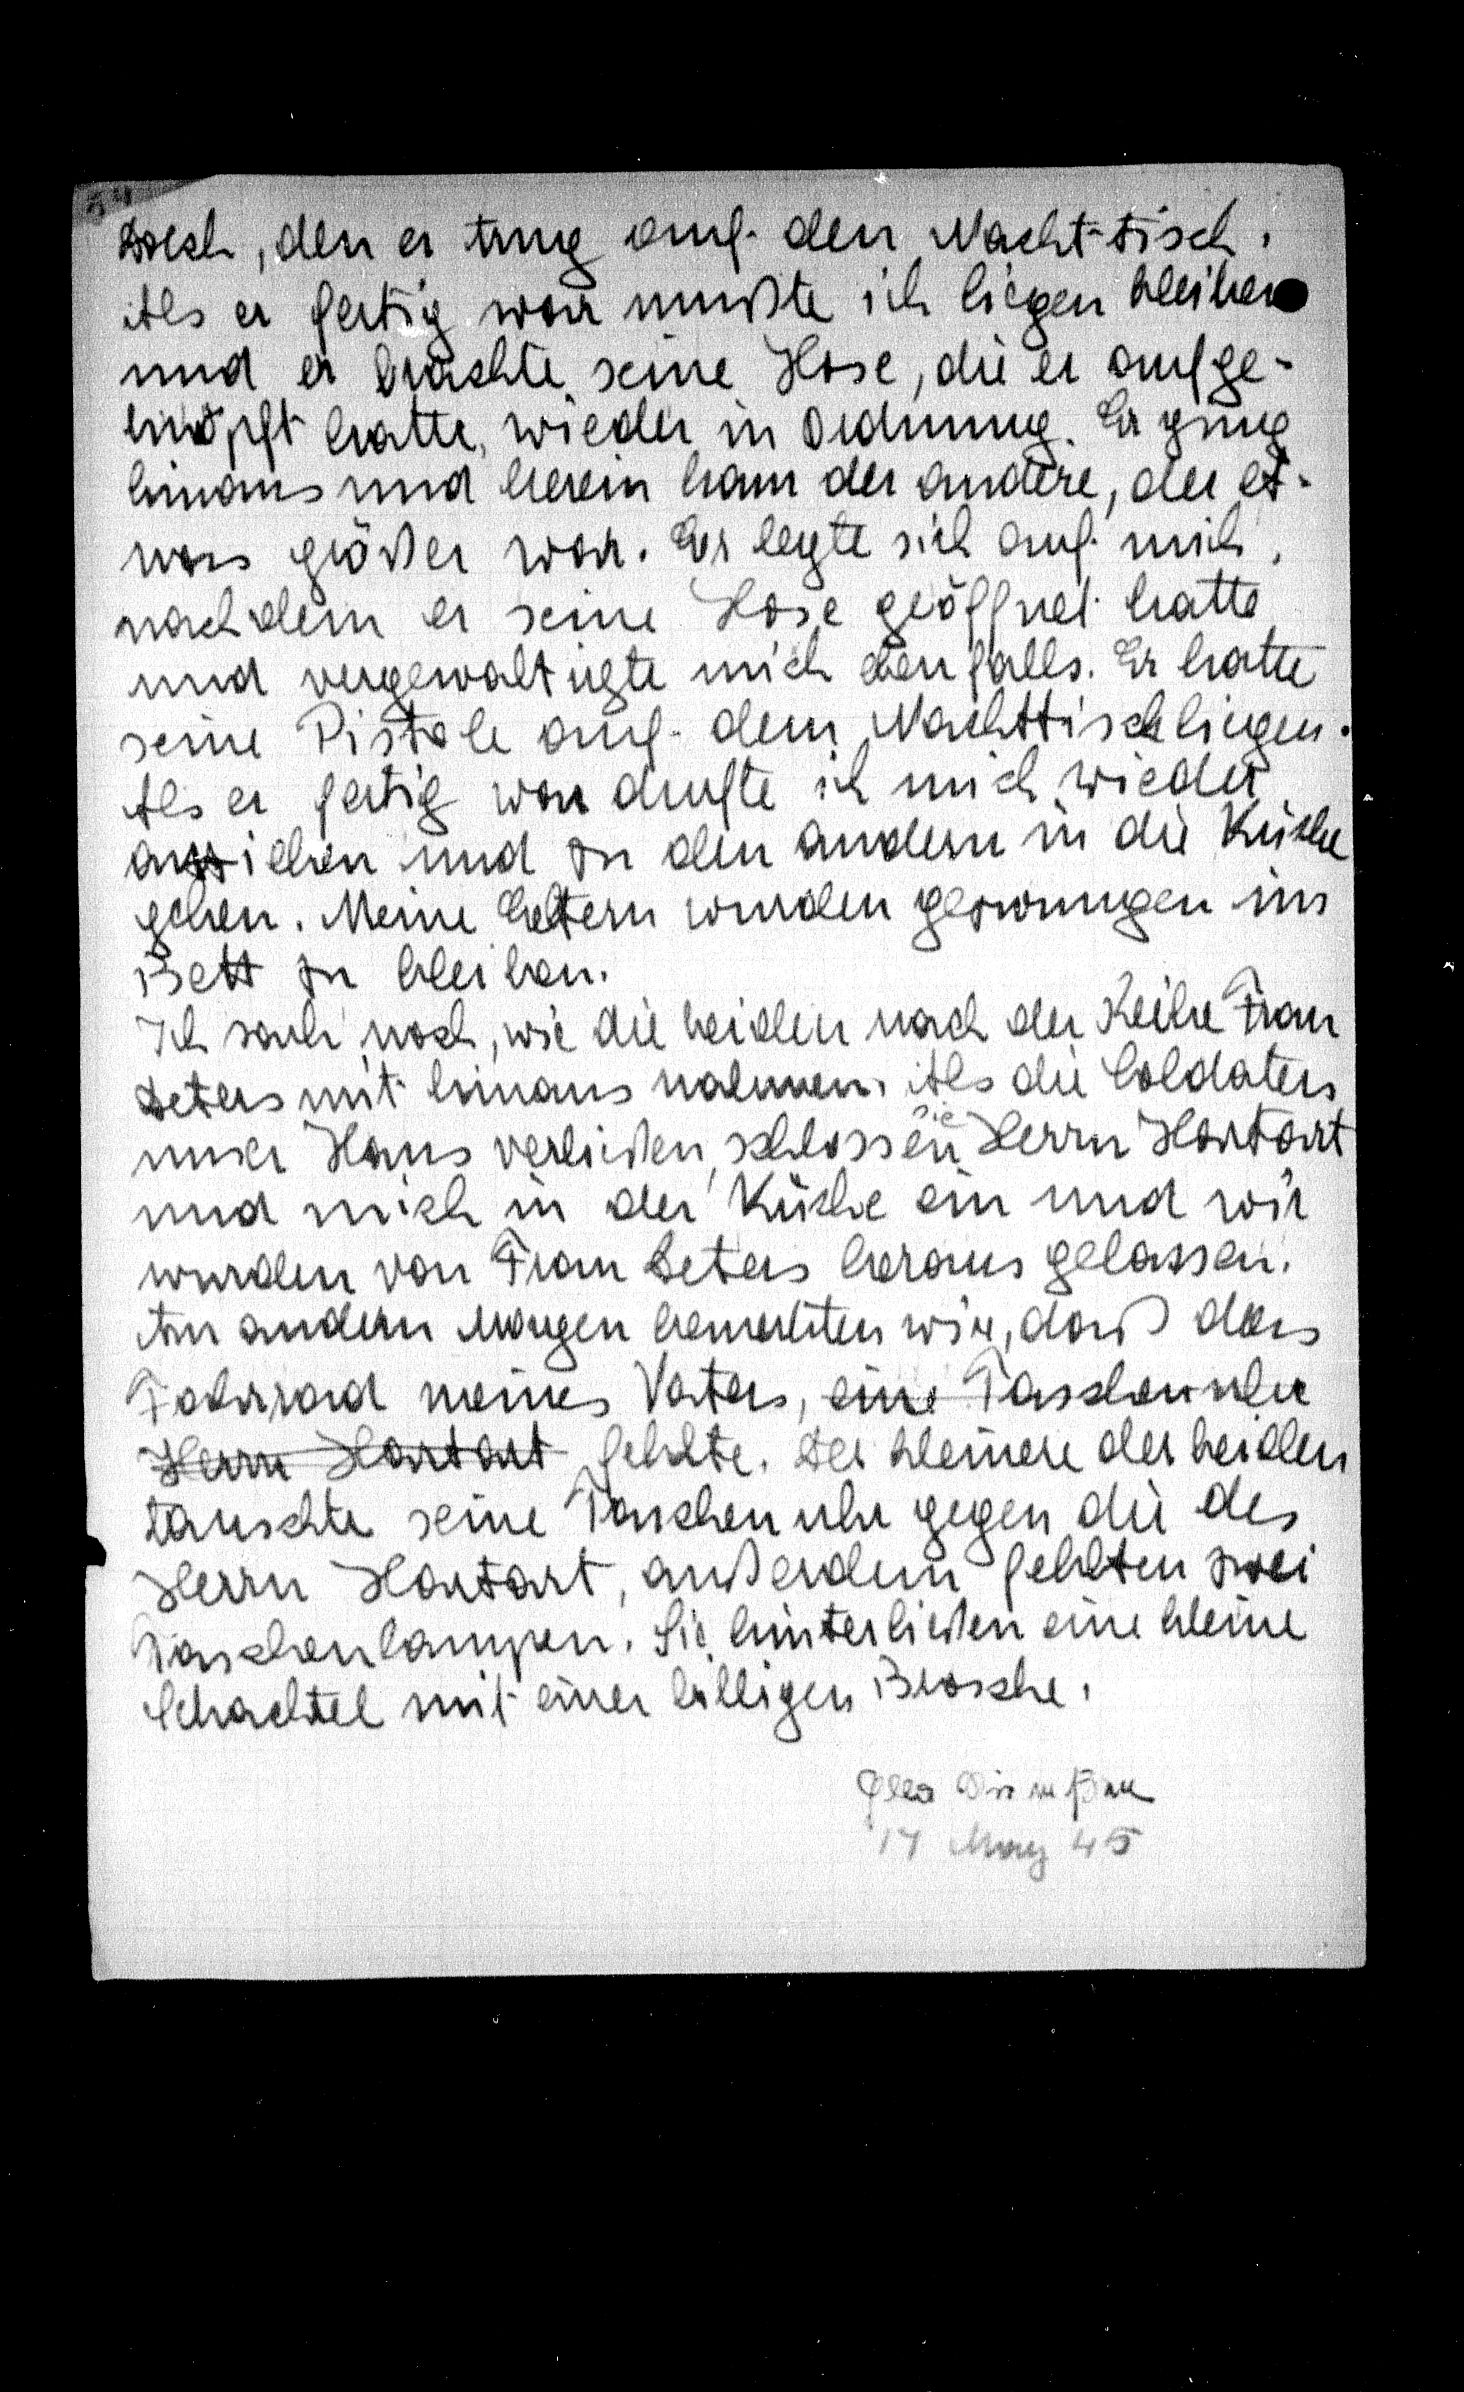 Dolch, den er trug auf den Nacht-tisch.
Als er fertig war mußte ich liegen bleiben
und er brachte seine Hose, die er aufge-
knöpft hatte, wieder in Ordnung. Er ging
hinaus und herein kam der andere, der et-
was größer war. Er legte sich auf mich,
nachdem er seine Hose geöffnet hatte
und vergewaltigte mich ebenfalls. Er hatte
seine Pistole auf dem Nachttisch liegen.
Als er fertig war durfte ich mich wieder
anziehen und zu den andern in die Küche
gehen. Meine Eltern wurden gezwungen im
Bett zu bleiben.
Ich sah noch, wie die beiden nach der Reihe Frau
Deters mit hinaus nahmen. Als die Soldaten
unser Haus verließen, schlossen sie Herrn Hartart
und mich in der Küche ein und wir
wurden von Frau Deters heraus gelassen.
Am andern Morgen bemerkten wir, daß das
Fahrrad meines Vaters, eine Taschenuhr
Herrn Hartart fehlte. Der kleinere der beiden
tauschte seine Taschenuhr gegen die des
Herrn Hartart, außerdem fehlten zwei
Taschenlampen. Sie hinterließen eine kleine
Schachtel mit einer billigen Brosche.
17 May 45